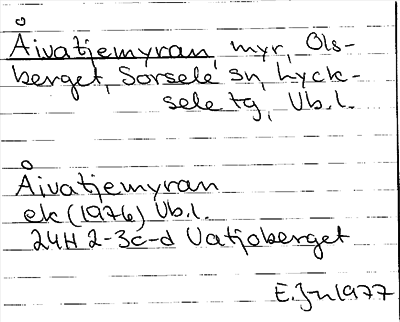 Åivatjemyran, myr, Ols-
berget, Sorsele sn, Lyck-
sele tg, Vb.l.
Åivatjemyran
ek (1976) Vb.l.
24H 2-3c-d Vatjoberget
E.Jn 1977